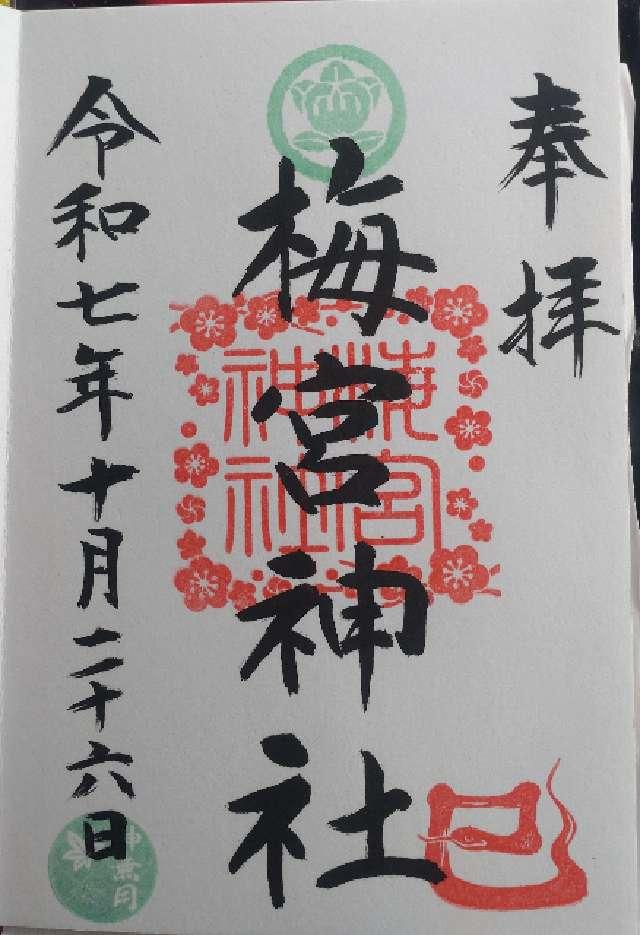 奉拝
梅宮神社
梅宮神社
令和七年十月二十六日
神無月
巳